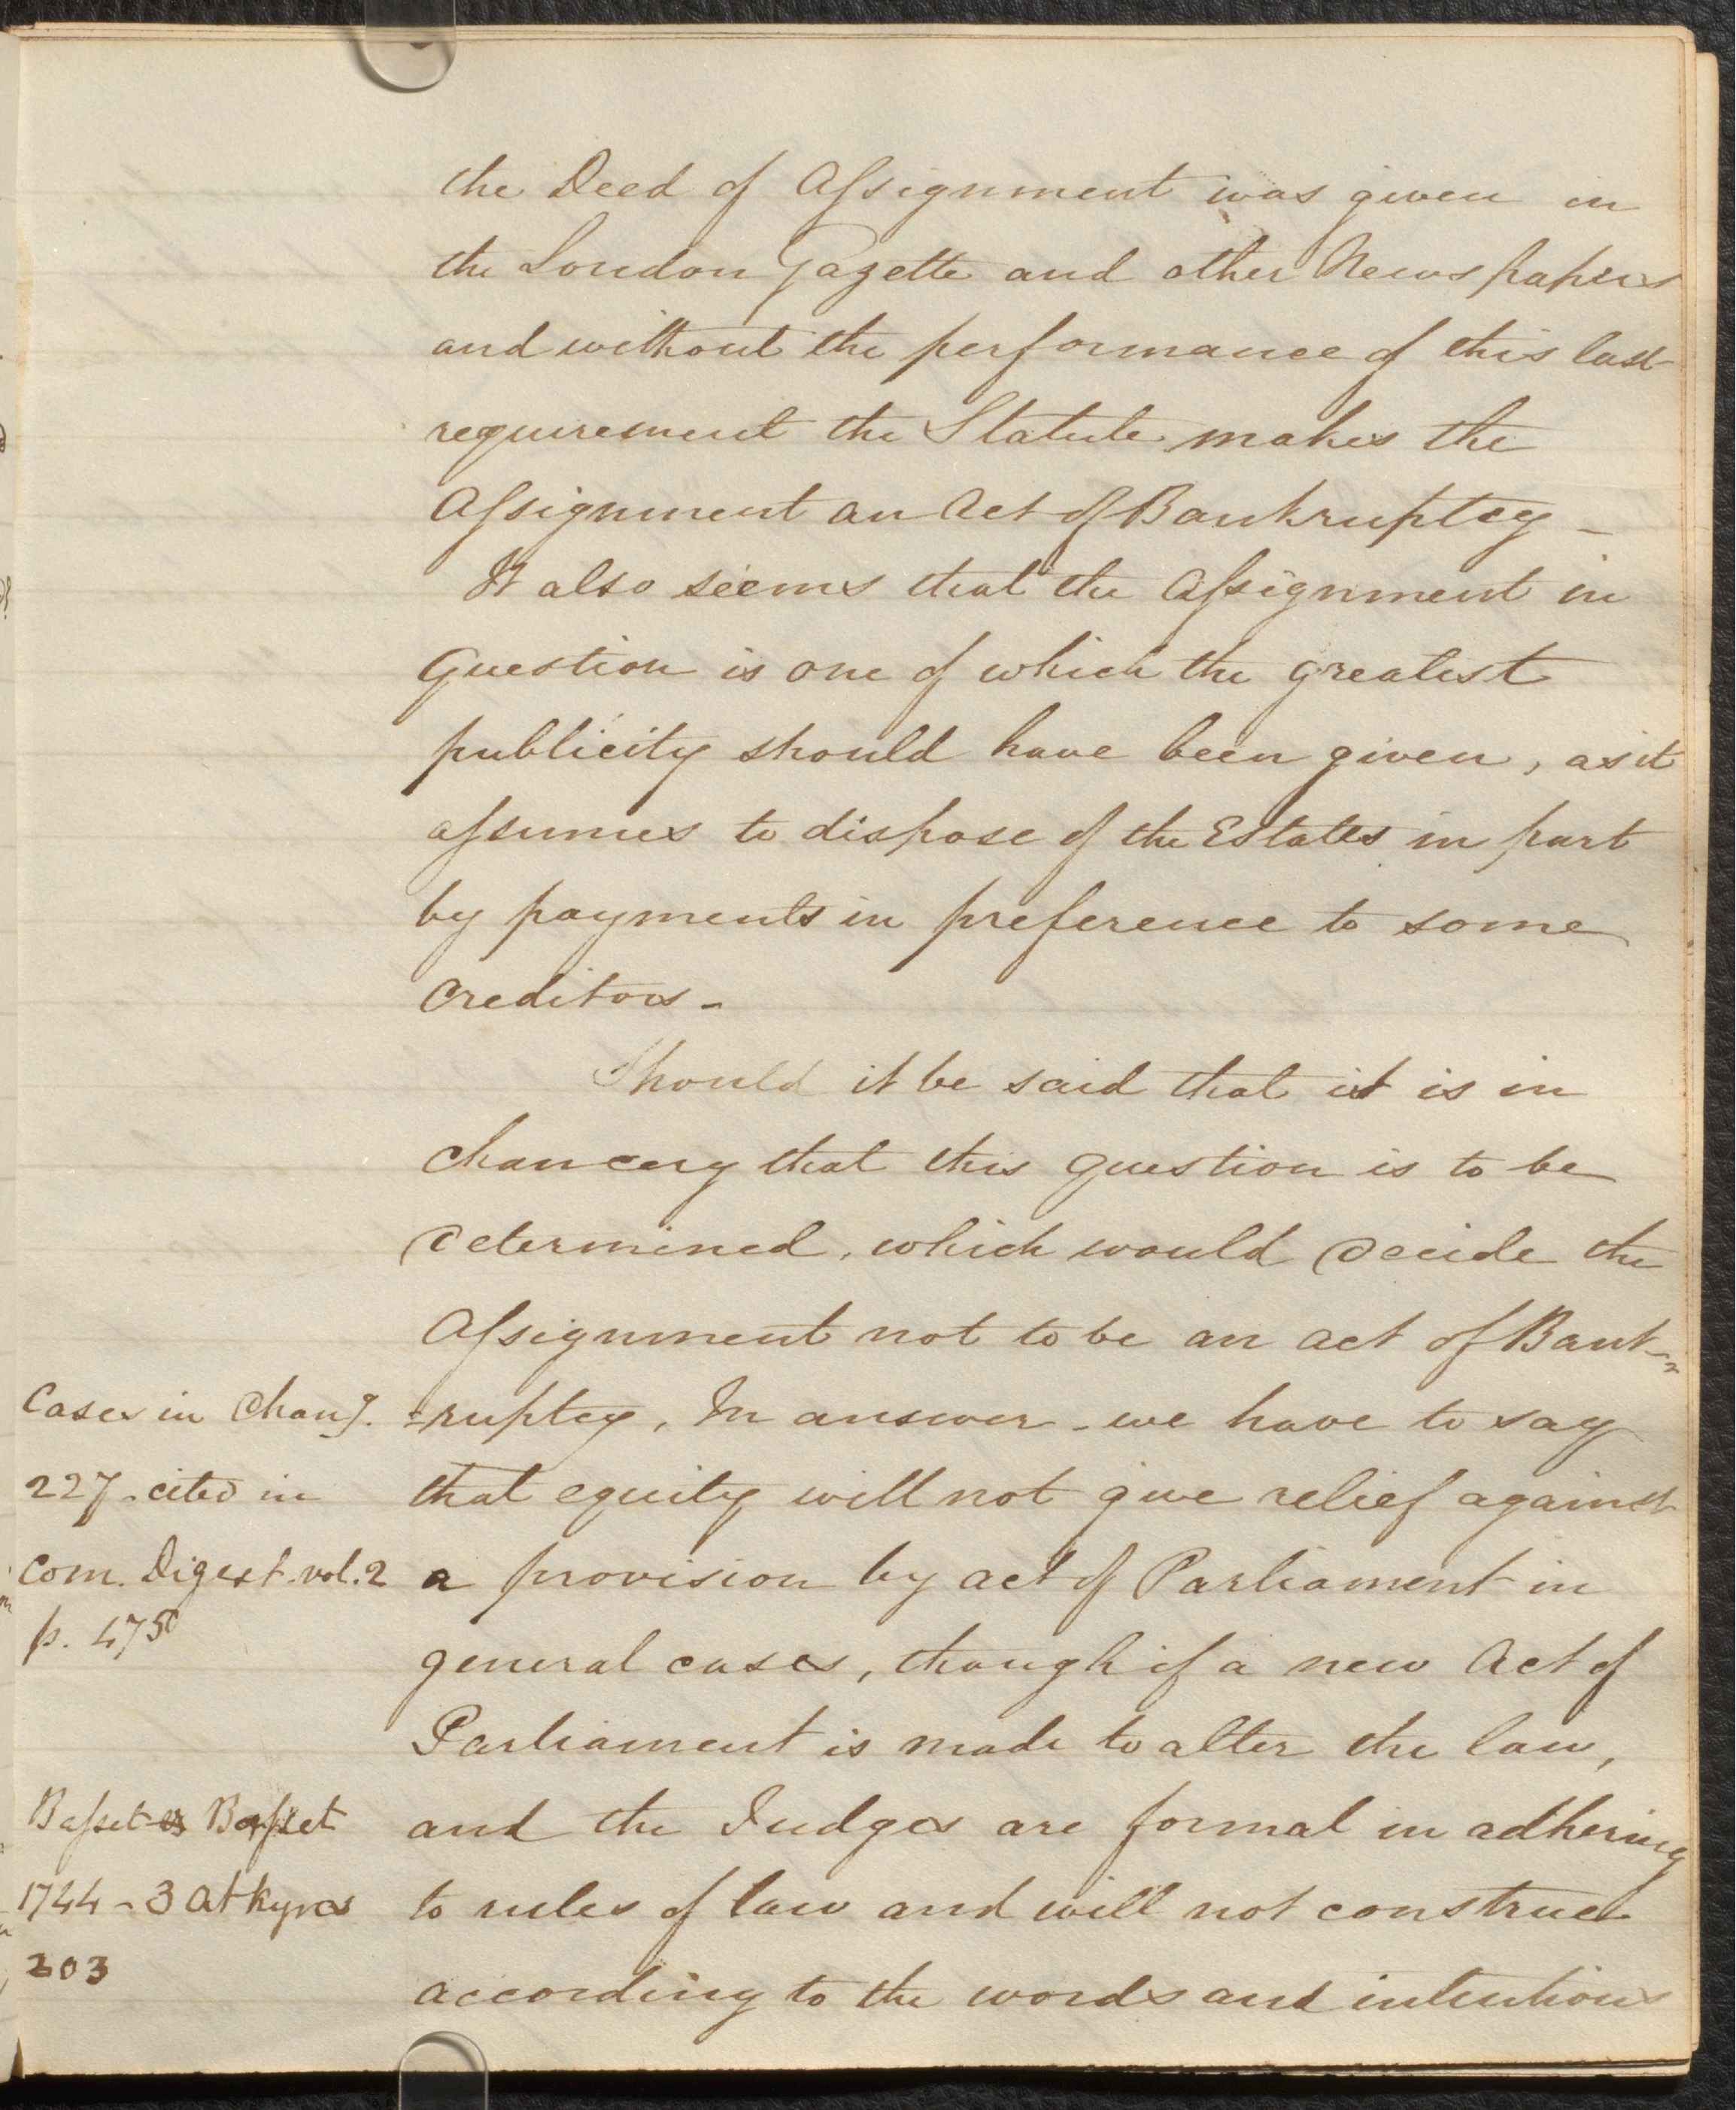 the Deed of Assignment was given in
the London Gazette and other Newspapers
and without the performance of this last
requirement the Statute makes the
Assignment an Act of Bankruptcy –
It also seems that the Assignment in
Question is one of which the greatest
publicity should have been given, as it
assumes to dispose of the Estates in part
by payments in preference to some
Creditors –
Should it be said that it is in
Chancery that this Question is to be
determined, which would decide the
Assignment not to be an act of Bank-
=ruptcy, In answer – we have to say
that equity will not give relief against
a provision by act of Parliament in
general cases, though if a new Act of
Parliament is made to alter the law,
and the Judges are formal in adhering
to rules of law and will not construe
according to the words and intentions
Cases in Chany.
227 – cited in
Com. Digest. vol. 2
p. 475
Basset vs Basset
1744 – 3 Atkyns
203